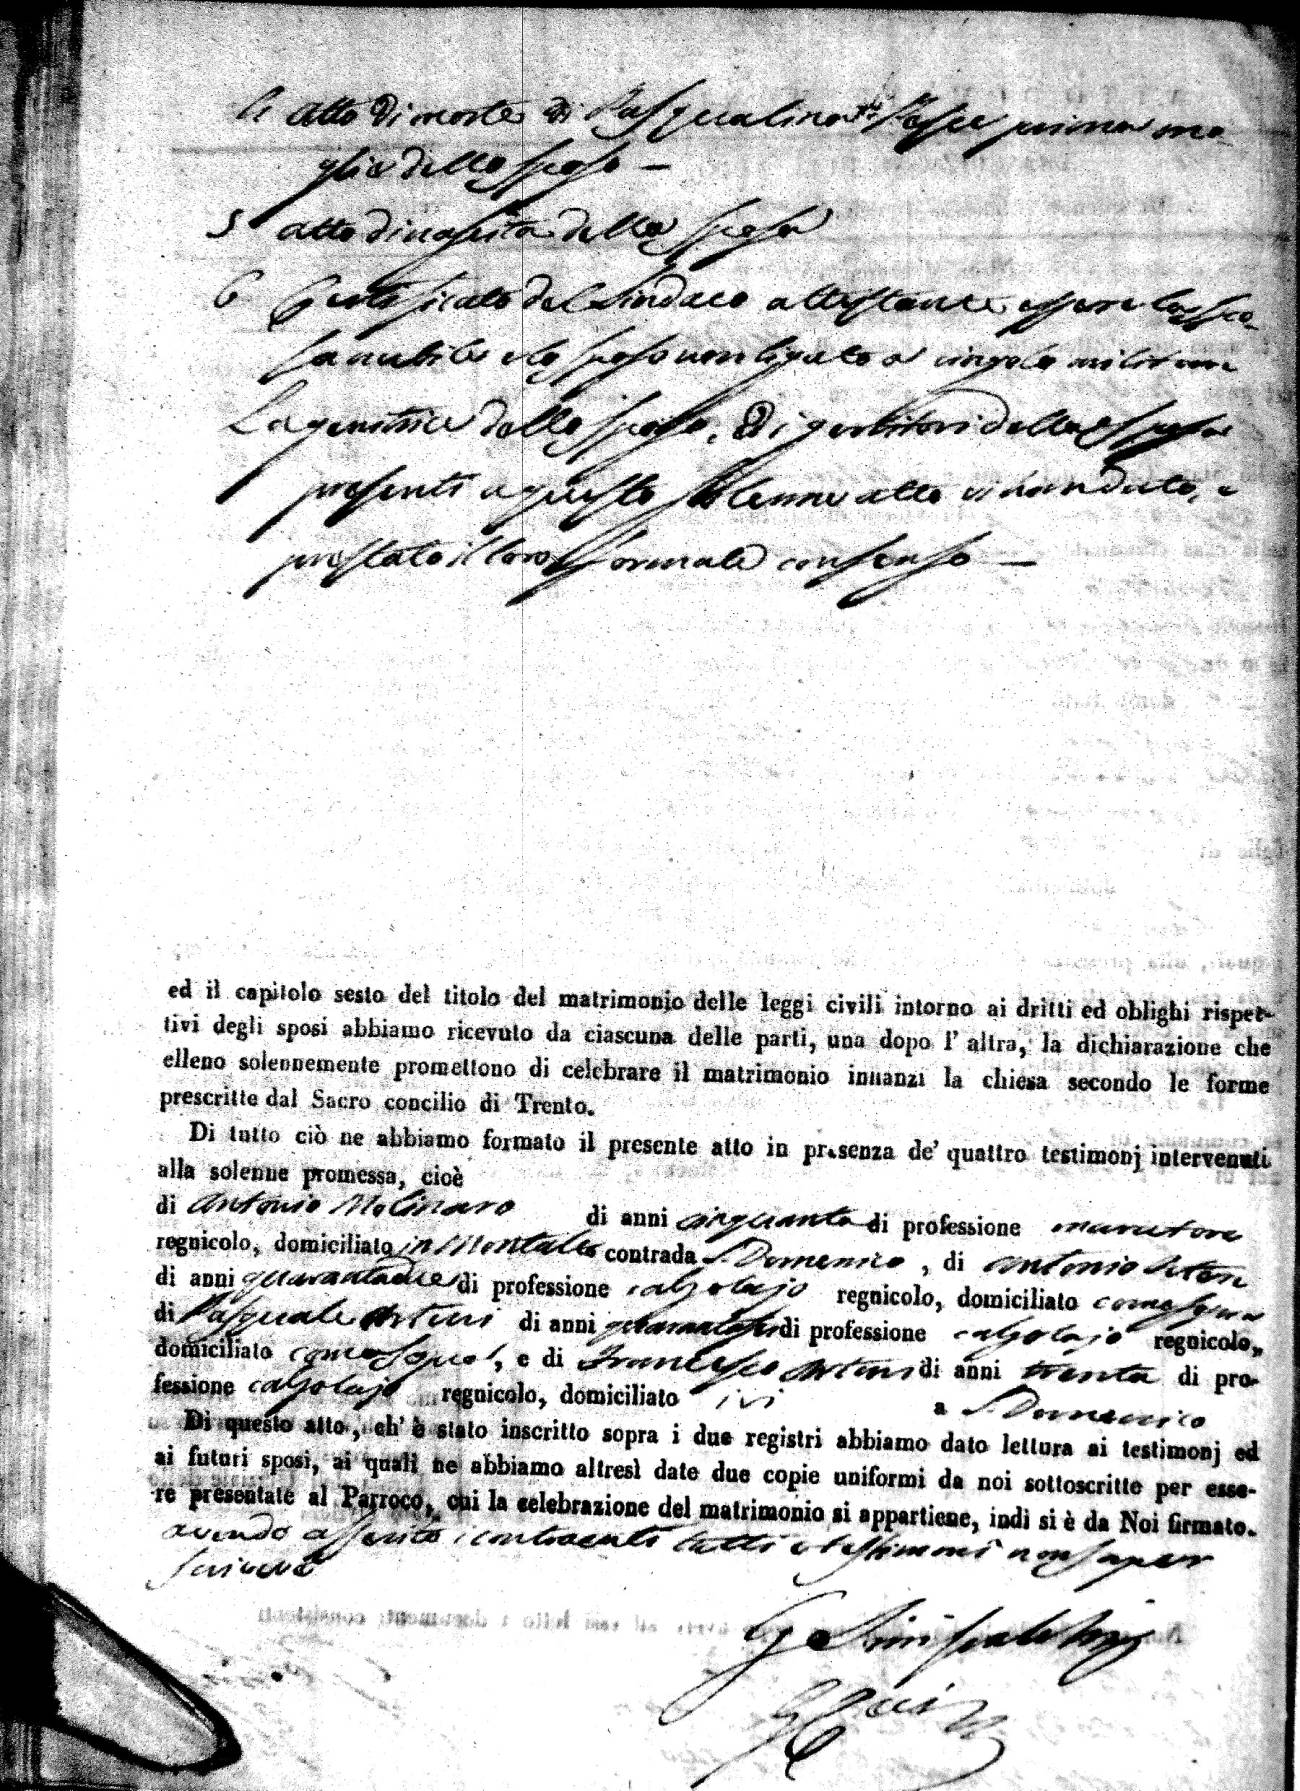 4 atto di morte di Pasqualina Pesce prima mo-
glie dello sposo —
5 atto di nascita della sposa
6 Certificato del Sindaco attestante essere la spo-
sa nubile e lo sposo non ligato a cingolo militare
La genitrice dello sposo, ed i genitori della sposa
presenti a questo solenne atto vi han dato, e
prestato il loro formale consenso —
ed il capitolo sesto del titolo del matrimonio delle leggi civili intorno ai dritti ed oblighi rispet-
tivi degli sposi abbiamo ricevuto da ciascuna delle parti, una dopo l' altra, la dichiarazione che
elleno solennemente promettono di celebrare il matrimonio innanzi la chiesa secondo le forme
prescritte dal Sacro concilio di Trento.
Di tutto ciò ne abbiamo formato il presente atto in presenza de' quattro testimonj intervenuti
alla solenne promessa, cioè
di Antonio Molinaro di anni cinquanta di professione muratore
regnicolo, domiciliato in Montalto contrada S. Domenico, di Antonio
di anni quarantadue di professione calzolajo regnicolo, domiciliato come sopra
di Pasquale Arturi di anni di professione calzolajo regnicolo,
domiciliato come sopra, e di Francesco Arturi di anni trenta di pro-
fessione calzolajo regnicolo, domiciliato ivi a S. Domenico
Di questo atto, ch' è stato inscritto sopra i due registri abbiamo dato lettura ai testimonj ed
ai futuri sposi, ai quali ne abbiamo altresì date due copie uniformi da noi sottoscritte per esse-
re presentate al Parroco, cui la celebrazione del matrimonio si appartiene, indi si è da Noi firmato.
avendo asserito i contraenti tutti e testimoni non saper
scrivere